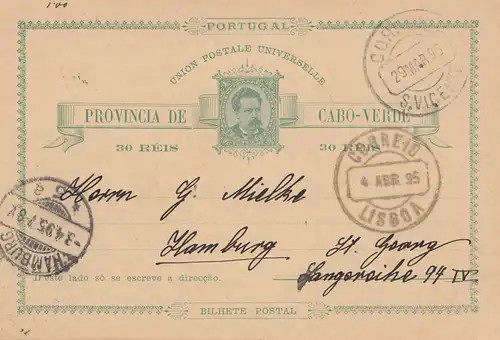 PORTUGAL
UNION POSTALE UNIVERSELLE
CORREIO
29 MAR 95
S. VICENTE
PROVINCIA DE CABO-VERDE
30 RÉIS 30 RÉIS
CORREIO
4 ABR 95
LISBOA
Herrn G. Mielke
Hamburg St. Georg
Langereihe 94 IV
HAMBURG
D'este lado só se escreve a direcção.
BILHETE POSTAL